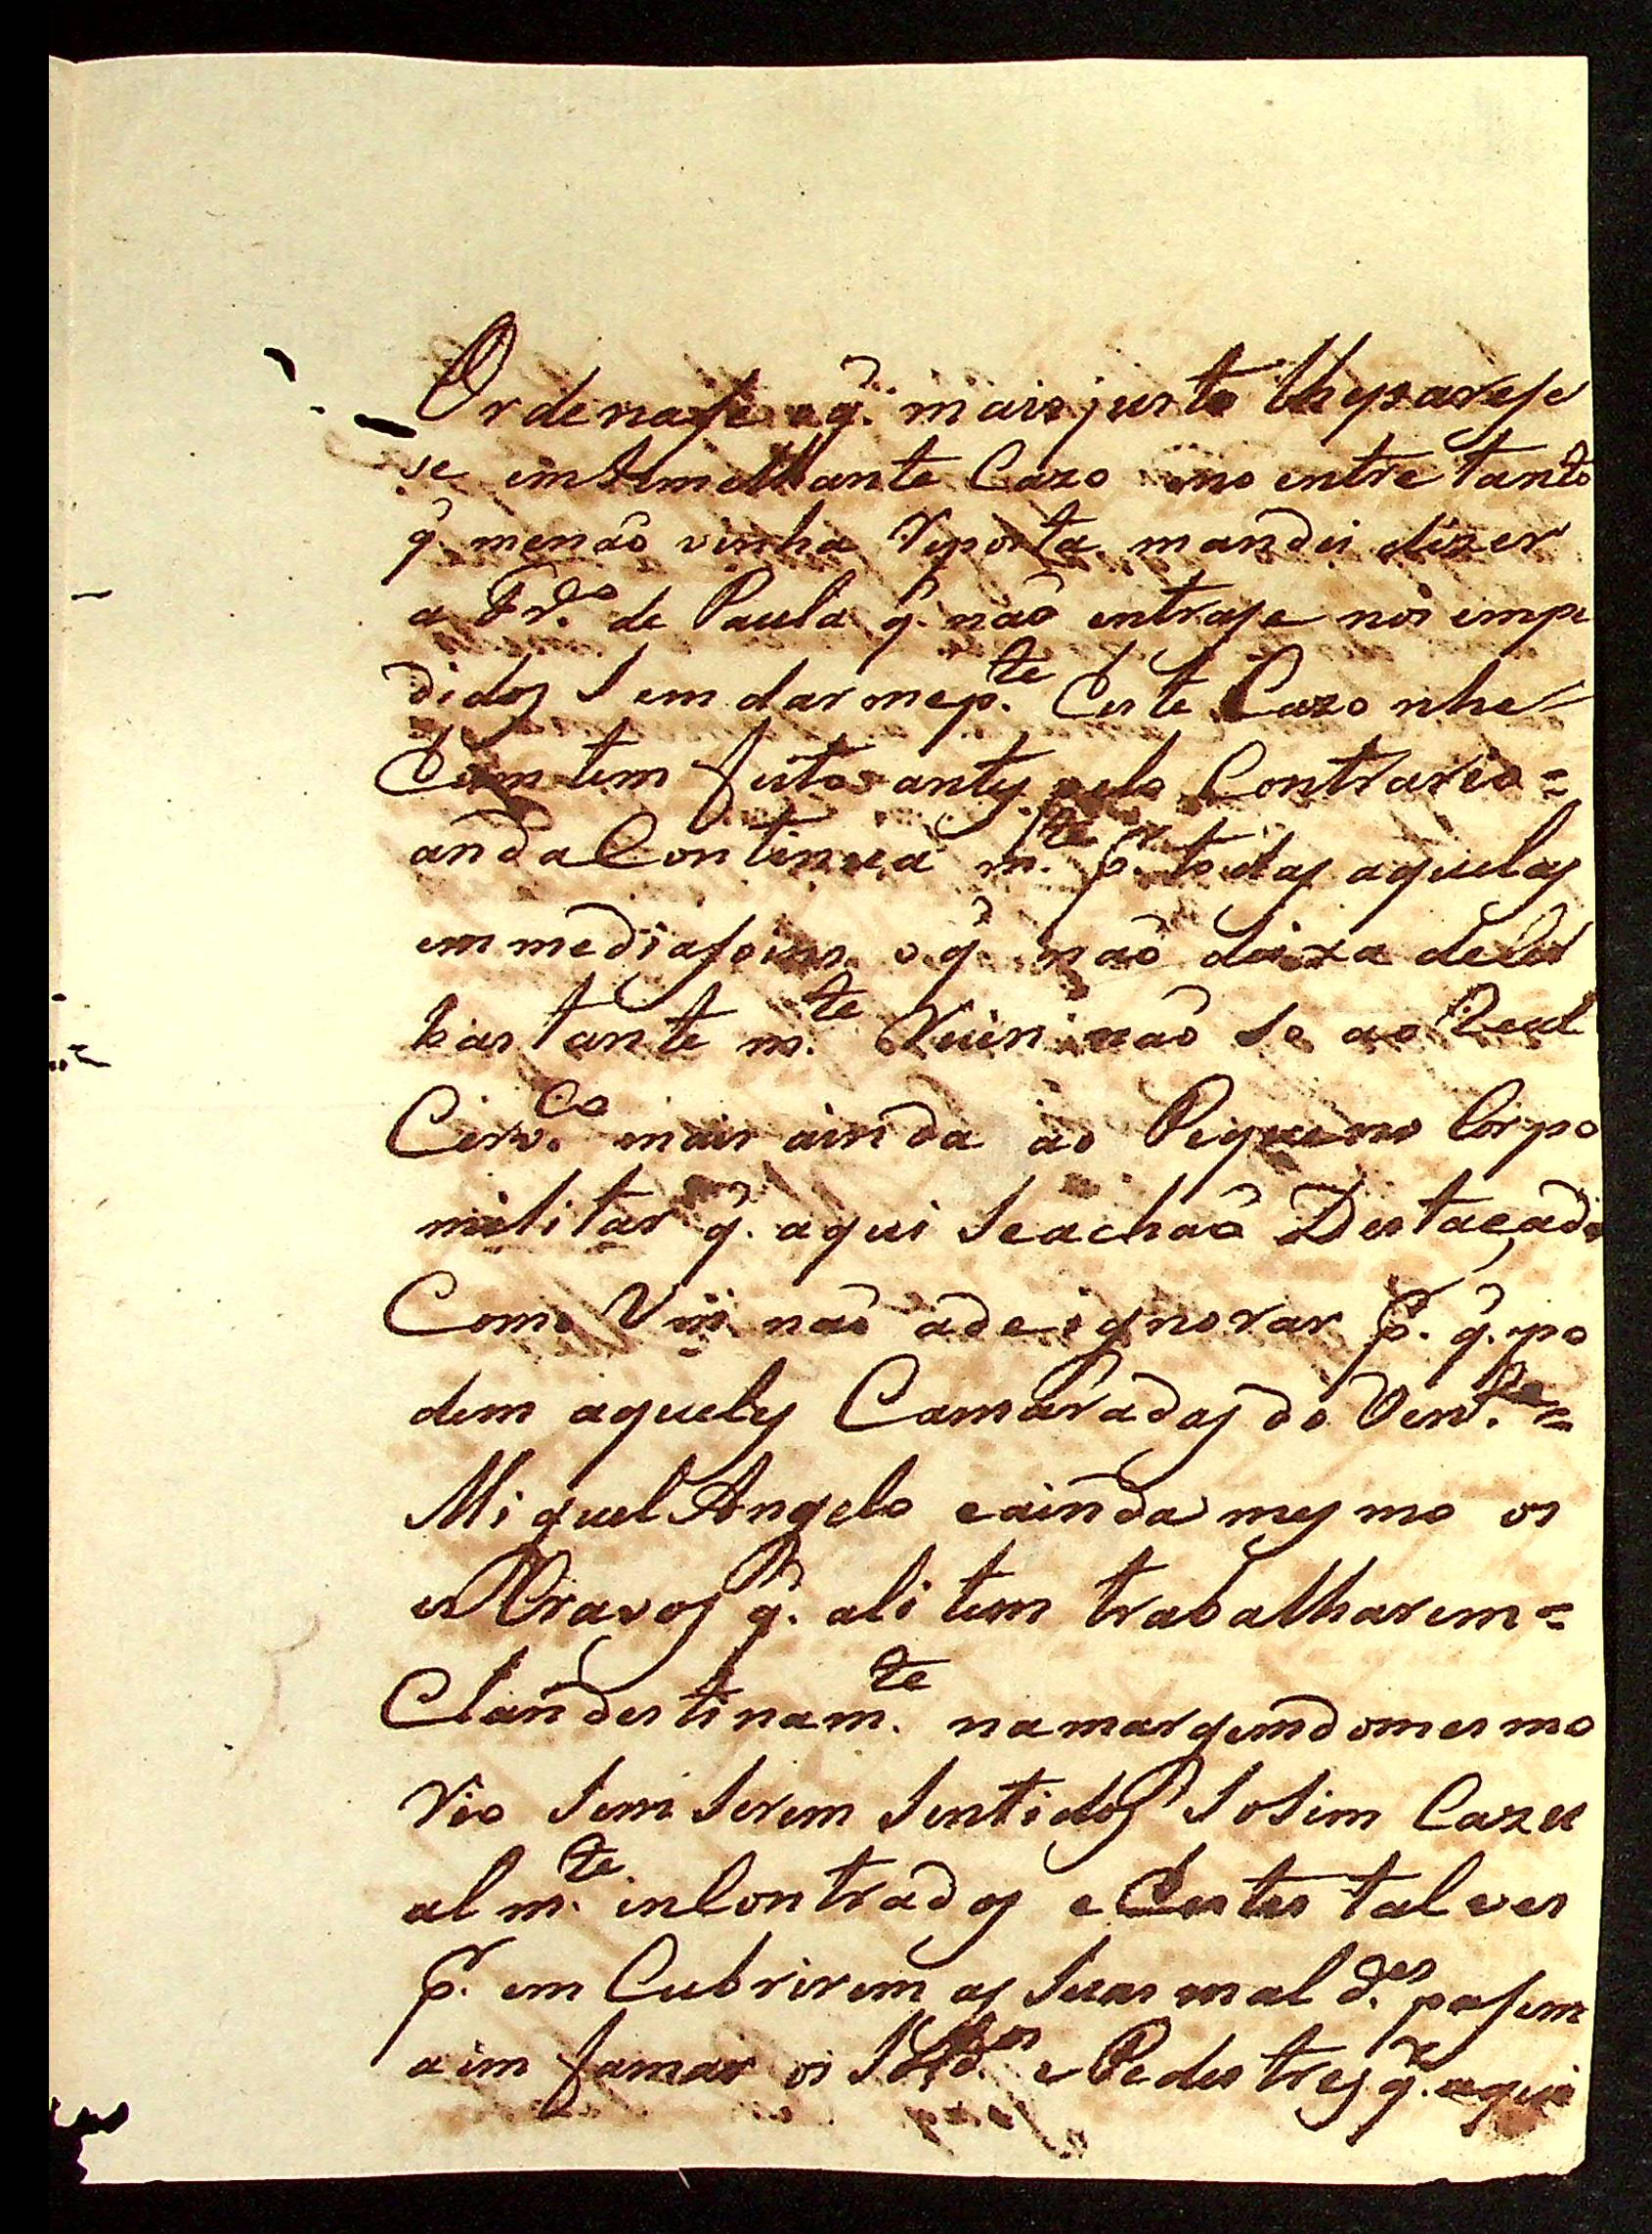 Ordenase o q. mais justo lhe parese
se em Semelhante Cazo eno entre tanto
q. menão vinha Reposta mandei dizer
a Fr.do de Paula q. não entrase nos empe
didos Sem dar mep.te Este Cazo nhe=
Cum tem feito antes pelo Contrario=
anda Continua m.te p.r todas aquelas
emmediasoins o q. não deixa deser
bastante m.te Ruin não So ao Real
Cerv.co mais ainda ao Piqueno Corpo
militar q. aqui Seachão Destacado
Como Vm não adeignorar p. q. po
dem aqueles Camaradas do Ten.te=
Miquel Angelo eainda mesmo os
esCravos q. ali tem trabalharem=
Clandestinam.te namargemdomesmo
Rio Sem Serem Sentidos So Sim Cazu
al m.te enContrados e Estes talves
p. em Cubrirem as Suas mal d.es pasem
a im famar os Sold.os e Pedestres q. aqui